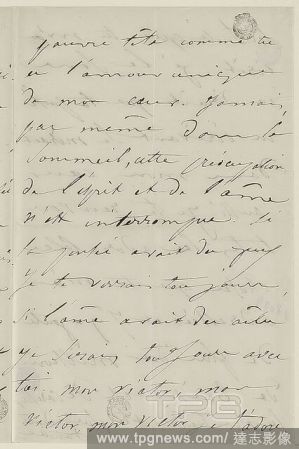 pauvre tête comme tu
es l'amour unique
de mon cœur. Jamais,
pas même dans le
sommeil, cette préoccupation
de l'esprit et de l'âme
n'est interrompue. Si
la pensée avait des yeux
je te verrais toujours,
si l'âme avait des ailes
je serais toujours avec
toi. mon victor, mon
victor, mon victor je t'adore
TPG
www.tpgnews.com / 達志影像